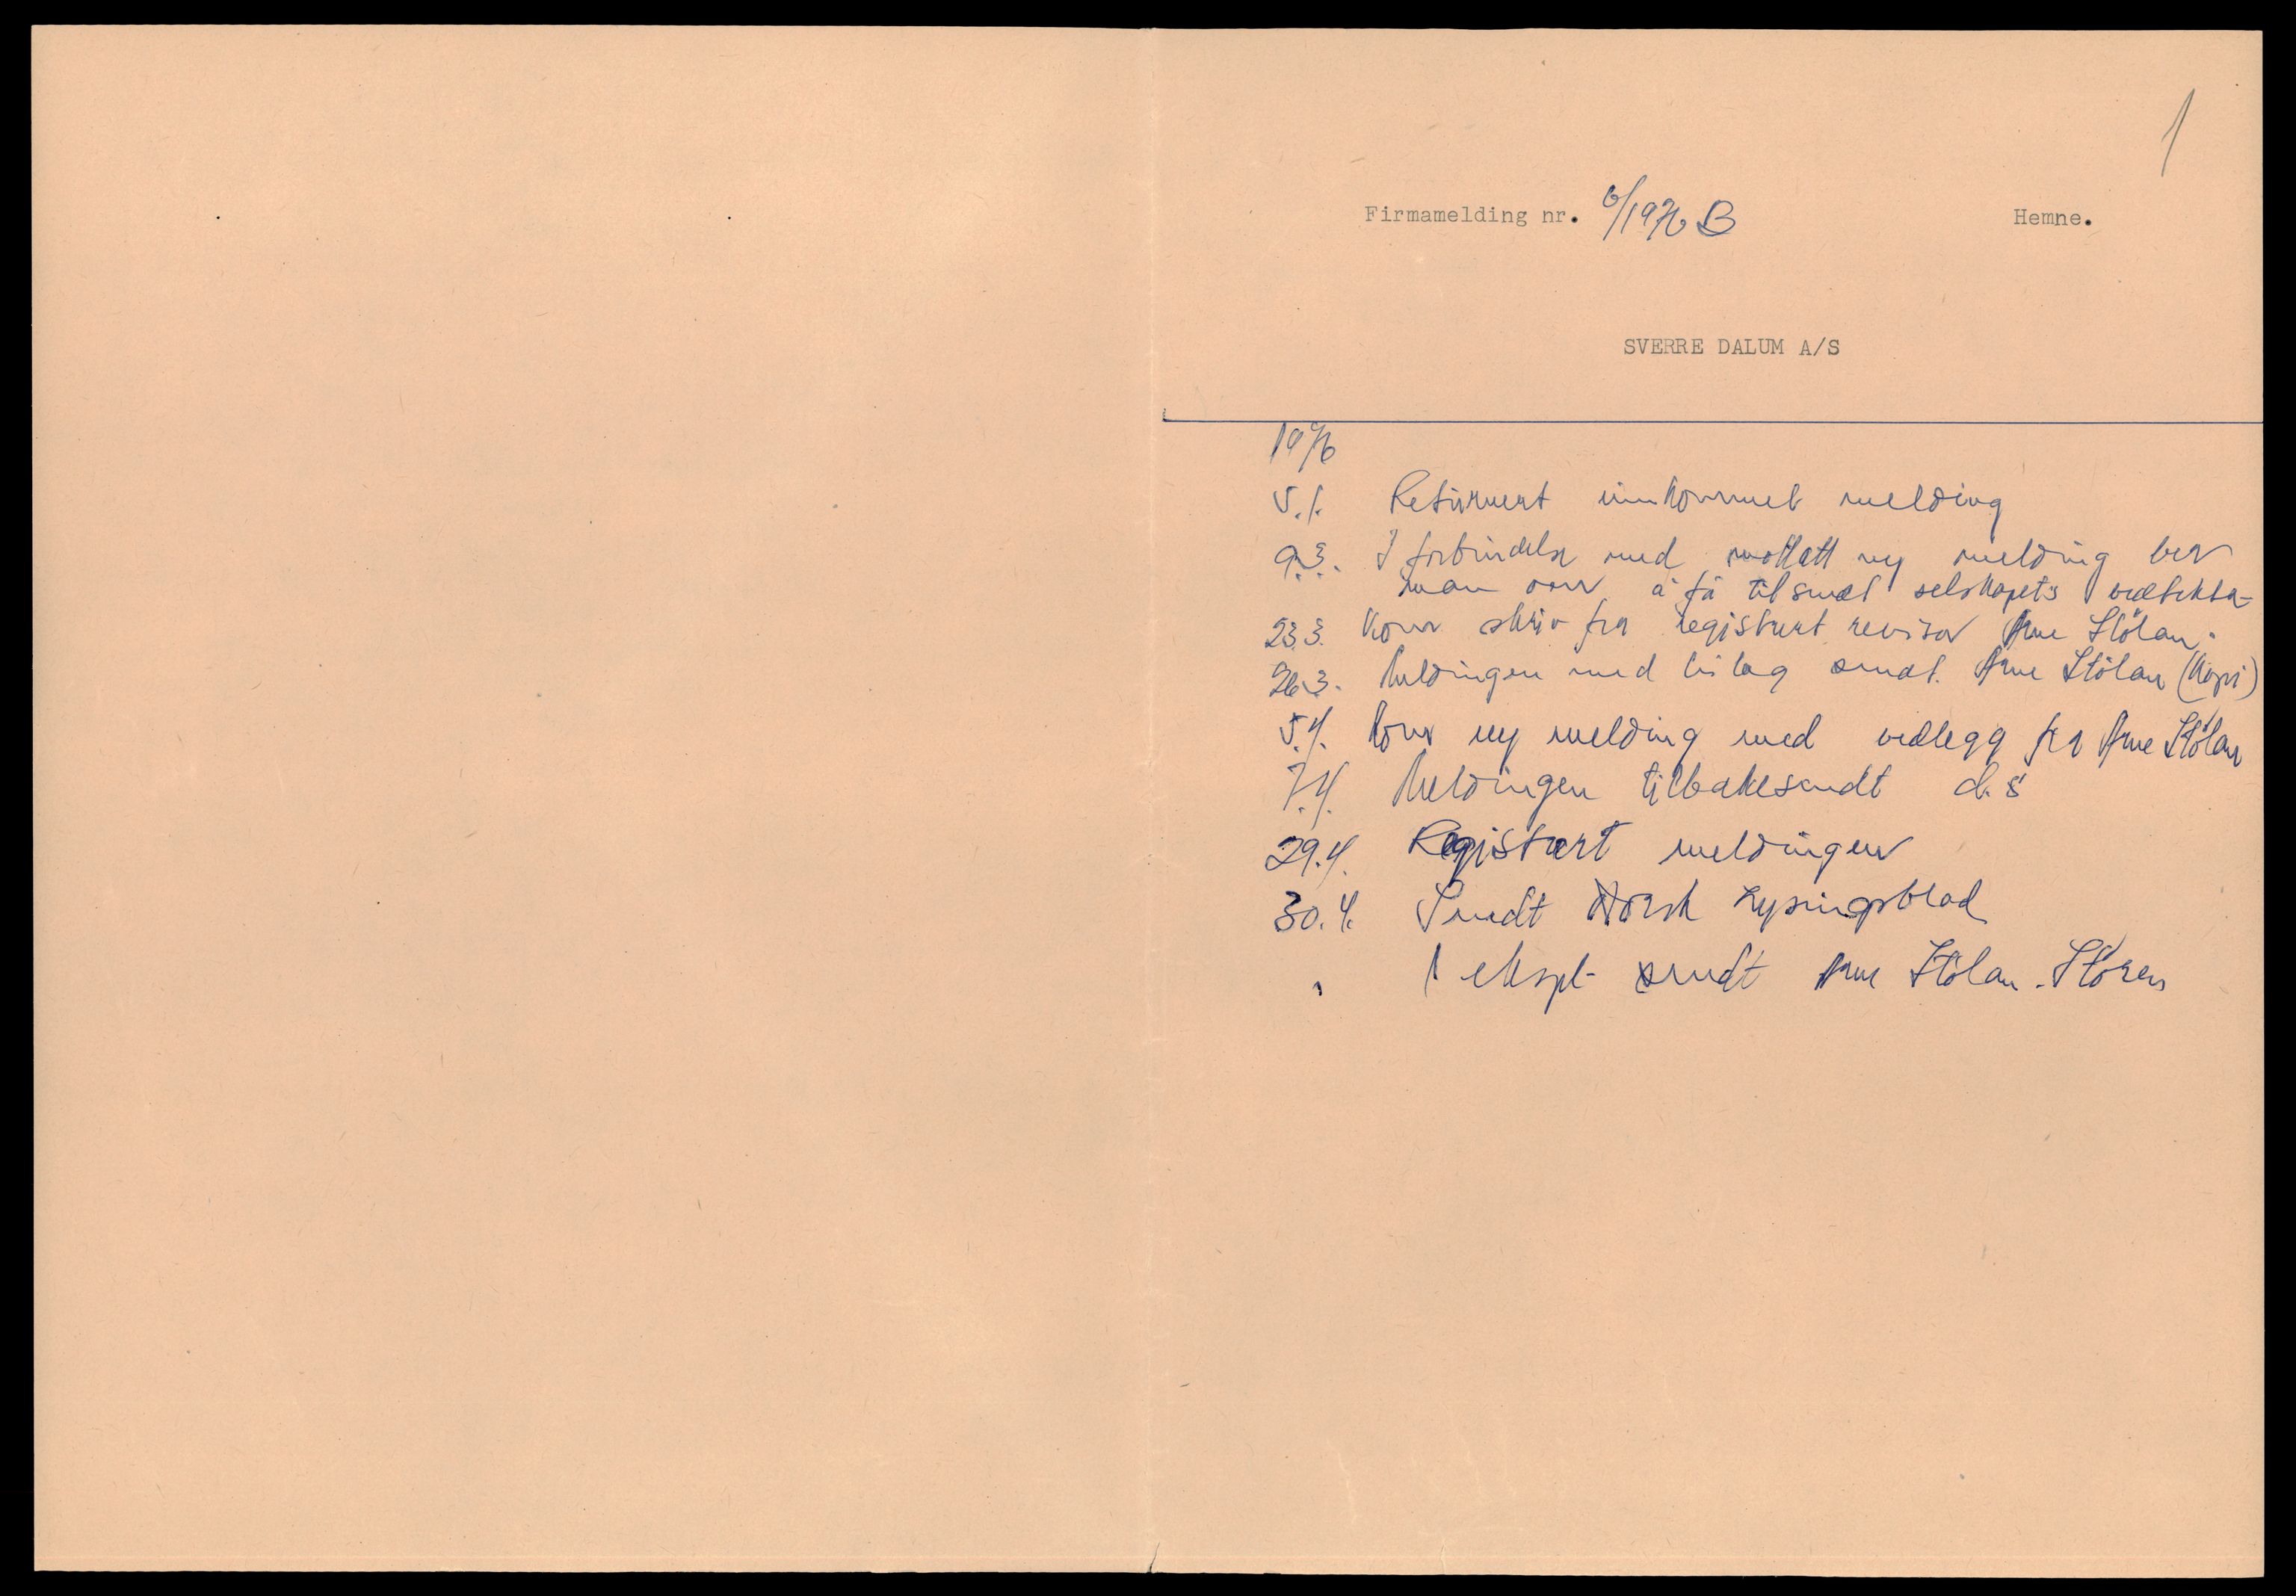 1
Firmamelding nr. 6/1976 B Hemne.
SVERRE DALUM A/S
1976
5.1. Returnert innkommet melding
9.3. I forbindelse med mottatt ny melding ber
man om å få tilsendt selskapets vedtekter
23.3. Kom skriv fra registrert revisor Arne Stölan.
26.3. Meldingen med bilag sendt Arne Stölan (Kopi)
5.4. Kom ny melding med vedlegg fra Arne Stölan
7.4. Meldingen tilbakesendt d.s
29.4. Registrert meldingen
30.4. Sendt Norsk Lysingsblad
" 1 ekspl. sendt Arne Stölan. Stören